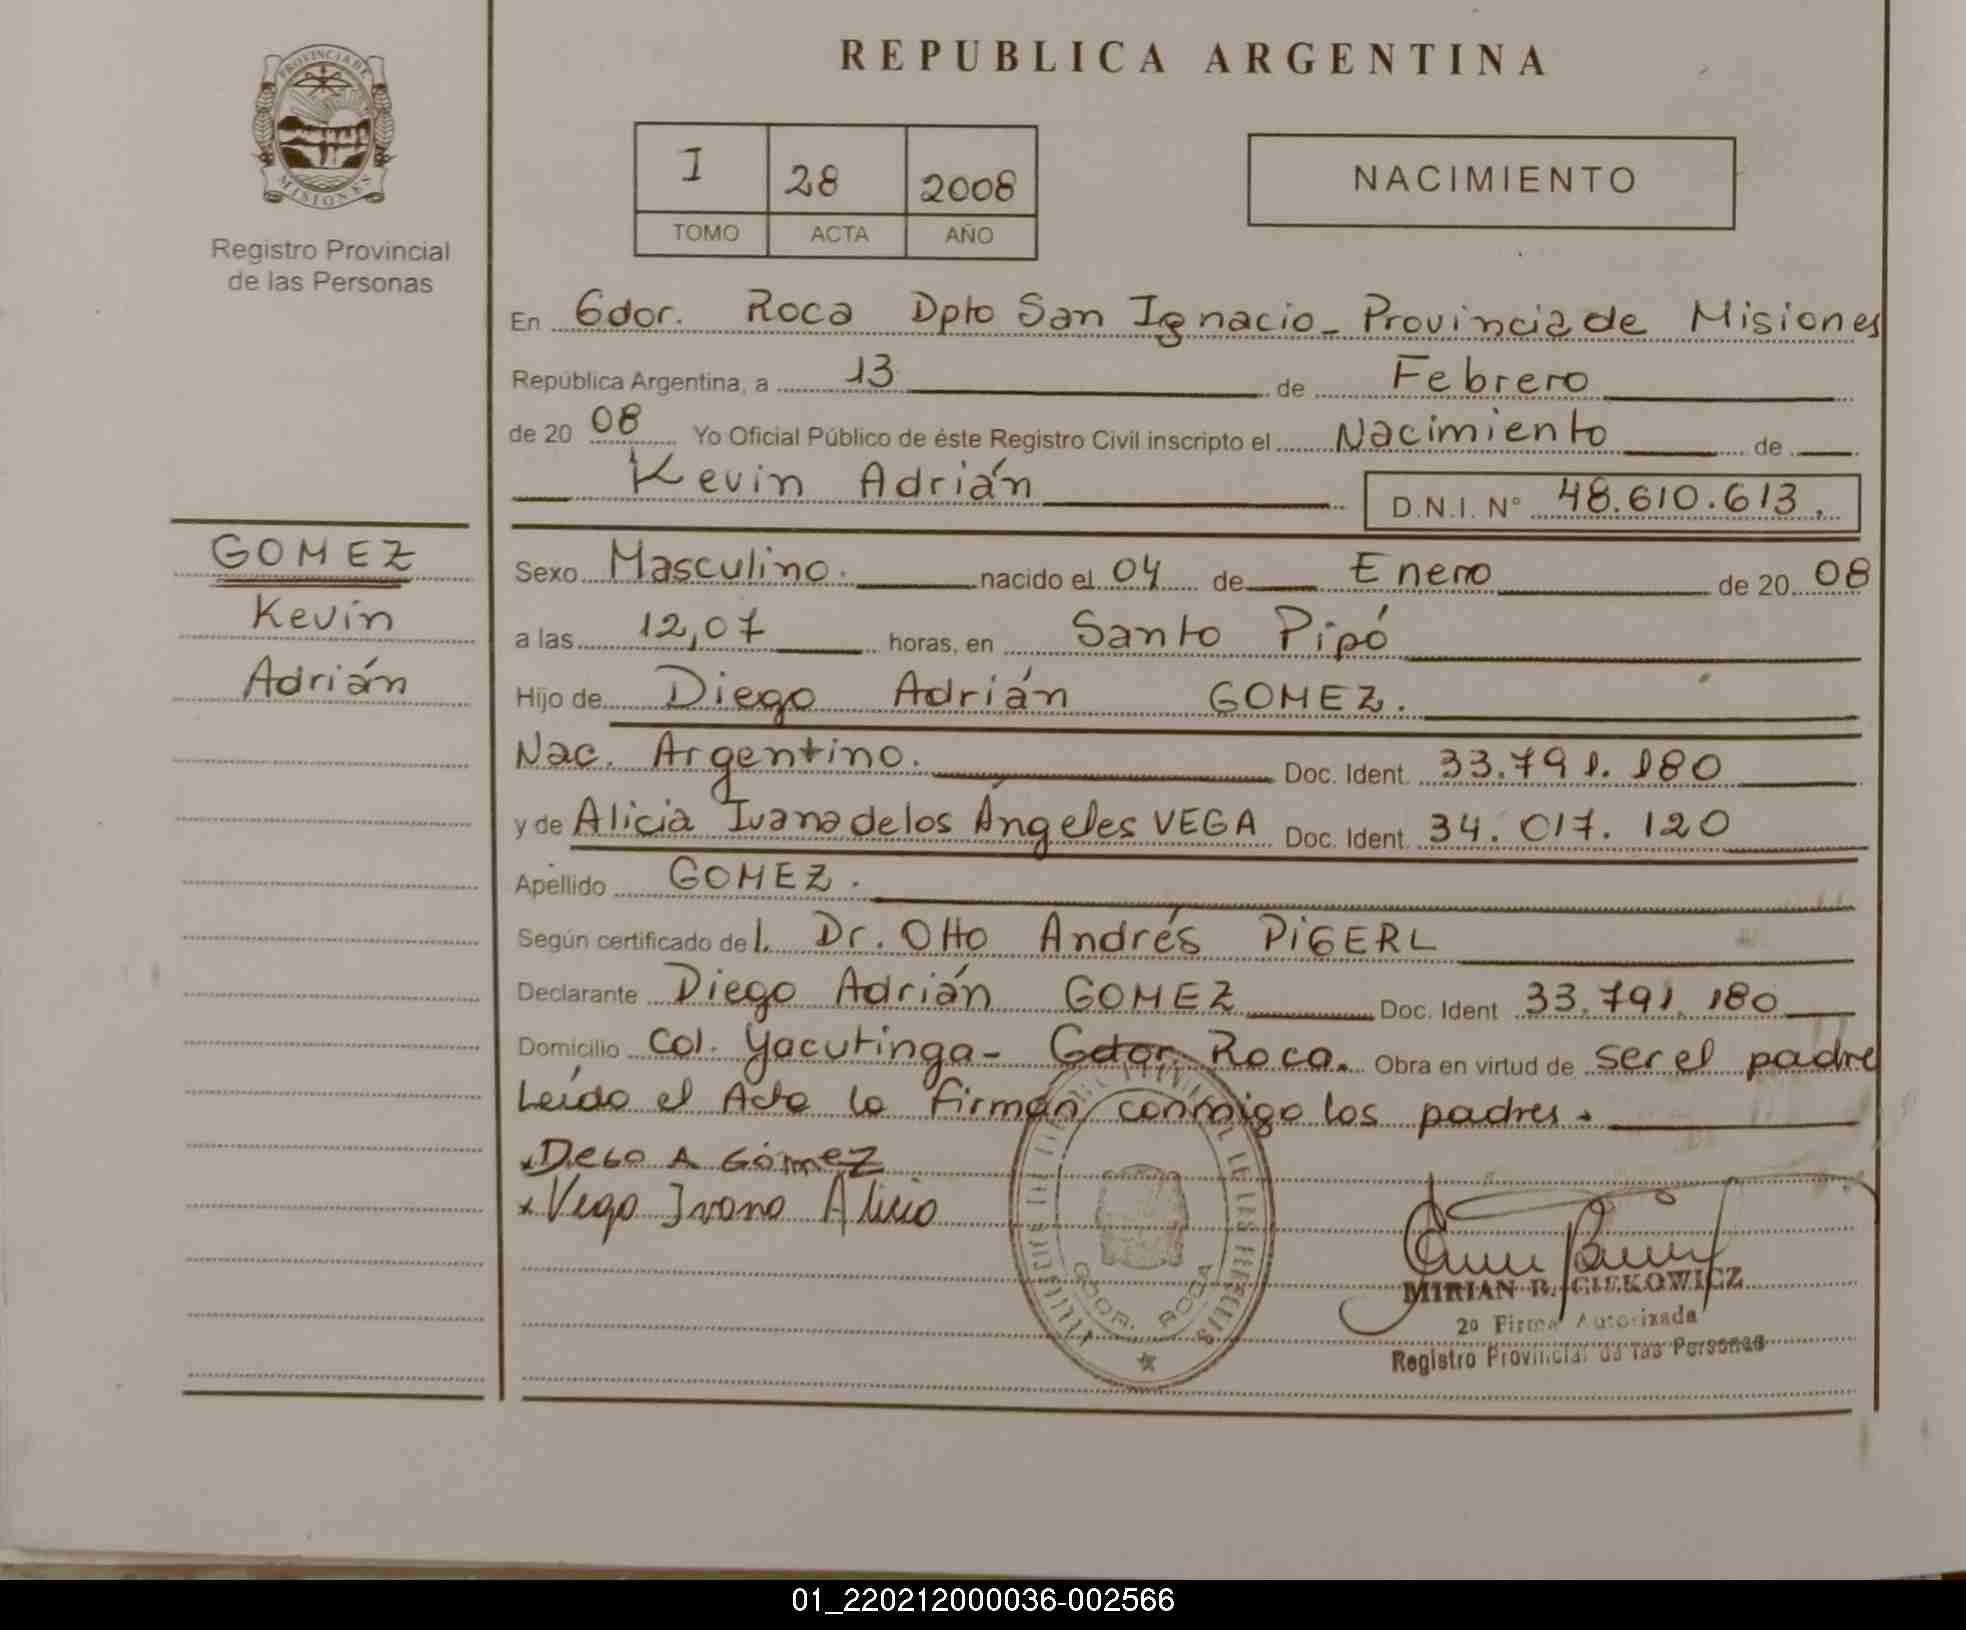 REPUBLICA ARGENTINA
PROVINCIA DE
MISIONES
Registro Provincial
de las Personas
I 28 2008
TOMO ACTA AÑO
NACIMIENTO
En Gdor. Roca Dpto San Ignacio - Provincia de Misiones
República Argentina, a 13 de Febrero
de 20 08 Yo Oficial Público de éste Registro Civil inscripto el Nacimiento de
Kevin Adrián D.N.I. N° 48.610.613.
GOMEZ
Kevin
Adrián
Sexo Masculino. nacido el 04 de Enero de 20 08
a las 12,07 horas, en Santo Pipó
Hijo de Diego Adrián GOMEZ.
Nac. Argentino. Doc. Ident. 33.791.180
y de Alicia Ivana de los Ángeles VEGA Doc. Ident. 34.017.120
Apellido GOMEZ.
Según certificado del. Dr. Otto Andrés PIGERL
Declarante Diego Adrián GOMEZ Doc. Ident 33.791.180
Domicilio Col. Yacutinga - Gdor. Roca. Obra en virtud de ser el padre
Leído el Acta la firman conmigo los padres.
x Diego A Gómez
x Vega Ivana Alicia
GDOR. ROCA
MIRIAN R. GIEKOWICZ
2º Firma Autorizada
Registro Provincial de las Personas
01_220212000036-002566